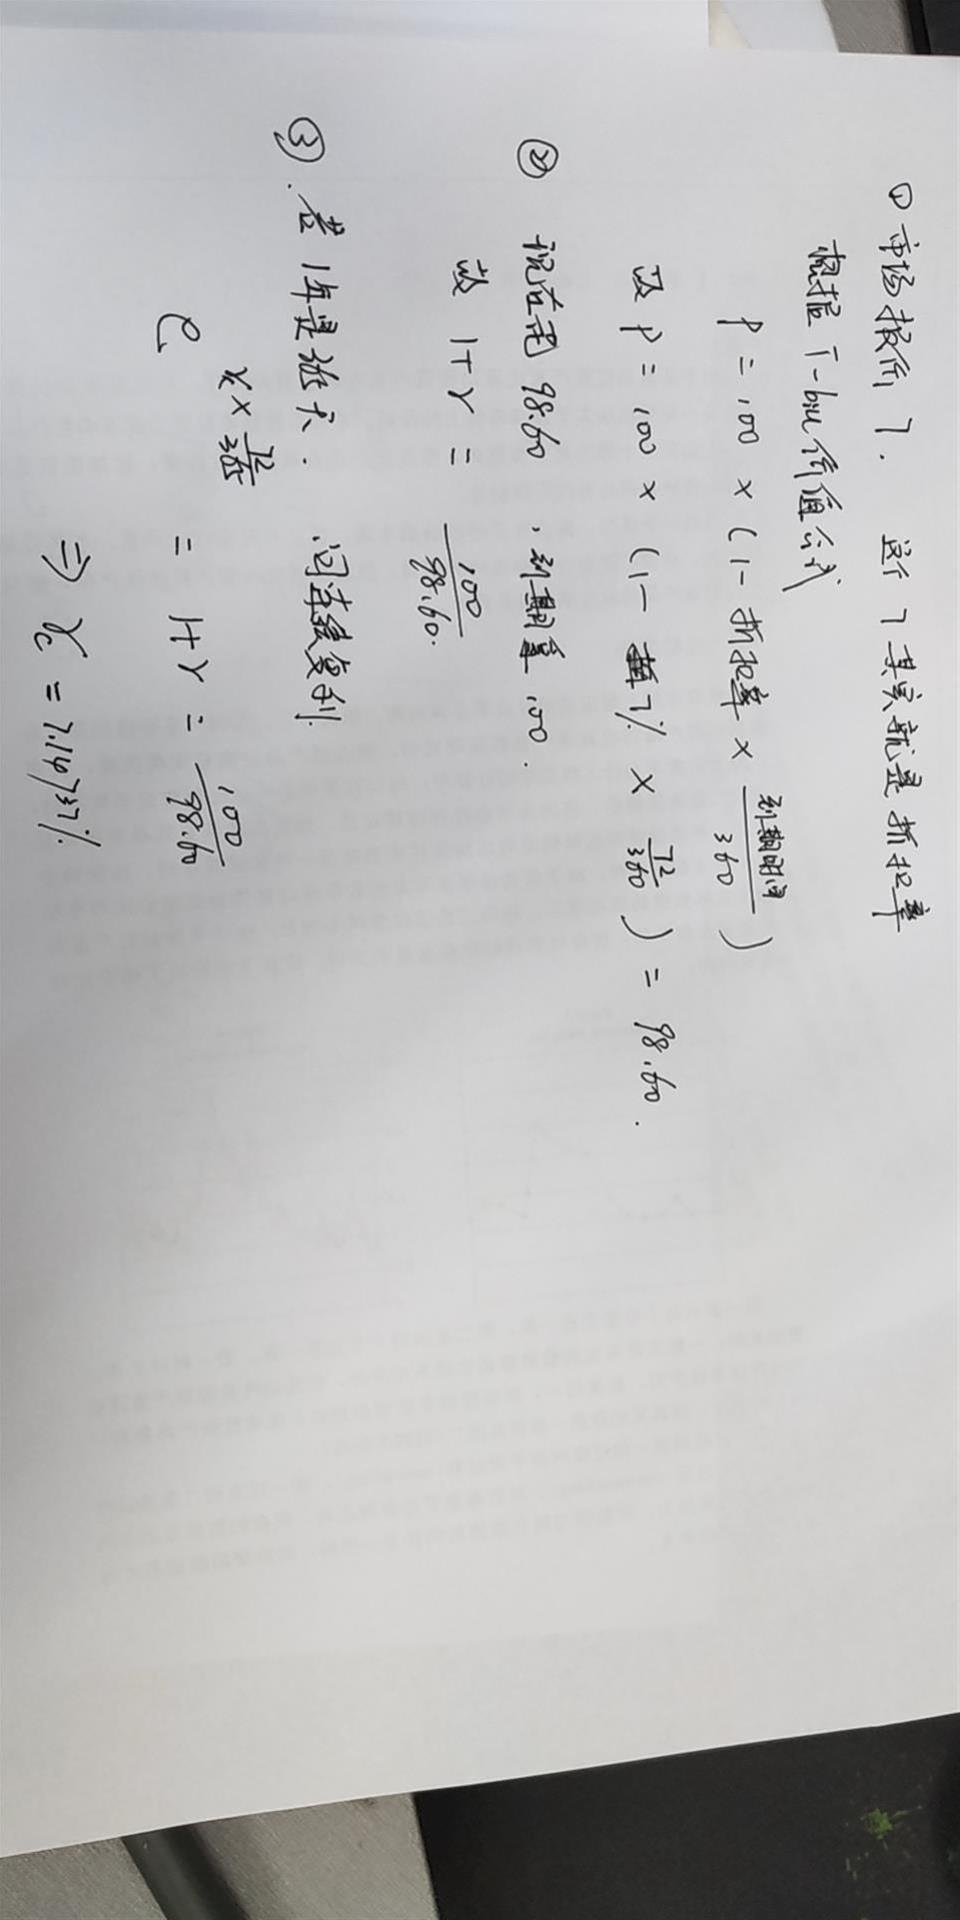 ① 市场报价 7. 这个 7 其实就是 折扣率
根据 T-bill 价值公式
P = 100 × (1 - 折扣率 × 到期时间/360)
故 P = 100 × (1 - 7% × 72/360) = 98.60.
② 现在花 98.60, 到期拿 100.
故 1+r = 100/98.60.
③. 若 1年是 365天. 问连续复利.
e^(r × 72/365) = 1+r = 100/98.60
⇒ rc = 7.14737%